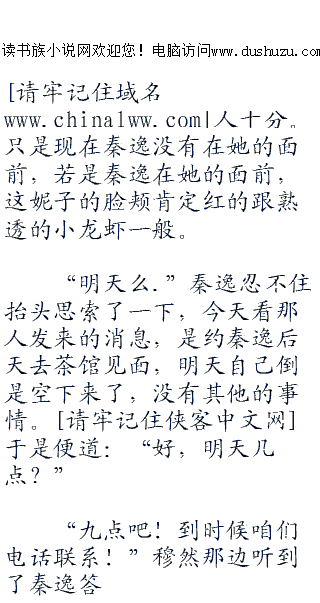 读书族小说网欢迎您！电脑访问www.dushuzu.com
[请牢记住域名
www.china1ww.com|人十分。
只是现在秦逸没有在她的面
前，若是秦逸在她的面前，
这妮子的脸颊肯定红的跟熟
透的小龙虾一般。
“明天么.”秦逸忍不住
抬头思索了一下，今天看那
人发来的消息，是约秦逸后
天去茶馆见面，明天自己倒
是空下来了，没有其他的事
情。[请牢记住侠客中文网]
于是便道：“好，明天几
点？”
“九点吧！到时候咱们
电话联系！”穆然那边听到
了秦逸答